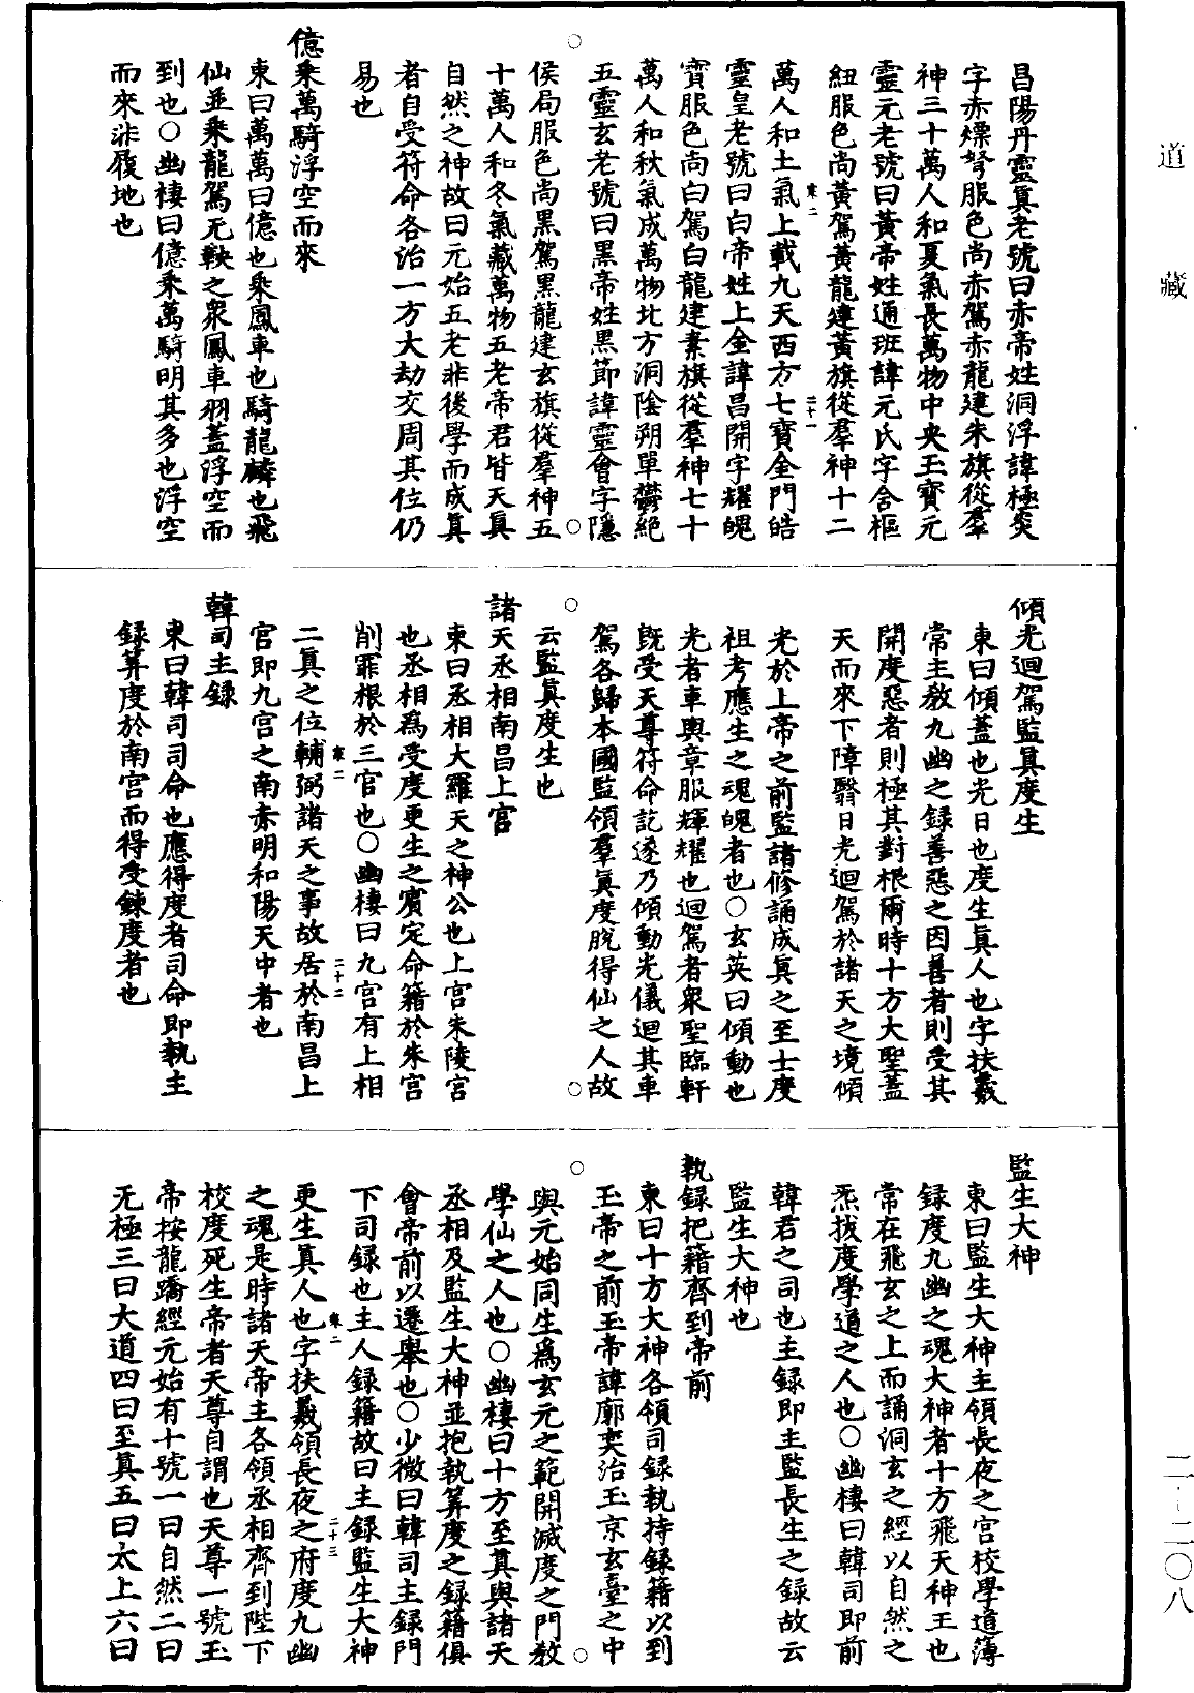 道藏
二·二〇八
昌陽丹靈真老號曰赤帝姓洞浮諱極炎
字赤熛弩服色尚赤駕赤龍建朱旗從羣
神三十萬人和夏氣長萬物中央玉寶元
靈元老號曰黃帝姓通班諱元氏字含樞
紐服色尚黃駕黃龍建黃旗從羣神十二
萬人和土氣上載九天西方七寶金門皓
靈皇老號曰白帝姓上金諱昌開字耀魄
寶服色尚白駕白龍建素旗從羣神七十
萬人和秋氣成萬物北方洞陰朔單鬱絕
五靈玄老號曰黑帝姓黑節諱靈會字隱
侯局服色尚黑駕黑龍建玄旗從羣神五
十萬人和冬氣藏萬物五老帝君皆天真
自然之神故曰元始五老非後學而成真
者自受符命各治一方大劫交周其位仍
易也
億乘萬騎浮空而來
東曰萬萬曰億也乘鳳車也騎龍麟也飛
仙並乘龍駕无鞅之衆鳳車羽蓋浮空而
到也〇幽棲曰億乘萬騎明其多也浮空
而來非履地也
傾光迴駕監真度生
東曰傾蓋也光日也度生真人也字扶羲
常主教九幽之録善惡之因善者則受其
開度惡者則極其對根爾時十方大聖蓋
天而來下障翳日光迴駕於諸天之境傾
光於上帝之前監諸修誦成真之至士度
祖考應生之魂魄者也〇玄英曰傾動也
光者車輿章服輝耀也迴駕者衆聖臨軒
既受天尊符命訖遂乃傾動光儀迴其車
駕各歸本國監領羣真度脫得仙之人故
云監真度生也
諸天丞相南昌上宮
東曰丞相大羅天之神公也上宮朱陵宮
也丞相爲受度更生之賓定命籍於朱宮
削罪根於三官也〇幽棲曰九宮有上相
二真之位輔弼諸天之事故居於南昌上
宮即九宮之南赤明和陽天中者也
韓司主録
東曰韓司司命也應得度者司命即執主
録筭度於南宮而得受鍊度者也
監生大神
東曰監生大神主領長夜之宮校學道薄
録度九幽之魂大神者十方飛天神王也
常在飛玄之上而誦洞玄之經以自然之
炁拔度學道之人也〇幽棲曰韓司即前
韓君之司也主録即主監長生之録故云
監生大神也
執録把籍齊到帝前
東曰十方大神各領司録執持録籍以到
玉帝之前玉帝諱廓奕治玉京玄臺之中
與元始同生爲玄元之範開滅度之門教
學仙之人也〇幽棲曰十方至真與諸天
丞相及監生大神並抱執筭度之録籍俱
會帝前以遷舉也〇少微曰韓司主録門
下司録也主人録籍故曰主録監生大神
更生真人也字扶羲領長夜之府度九幽
之魂是時諸天帝主各領丞相齊到陛下
校度死生帝者天尊自謂也天尊一號玉
帝按龍蹻經元始有十號一曰自然二曰
无極三曰大道四曰至真五曰太上六曰